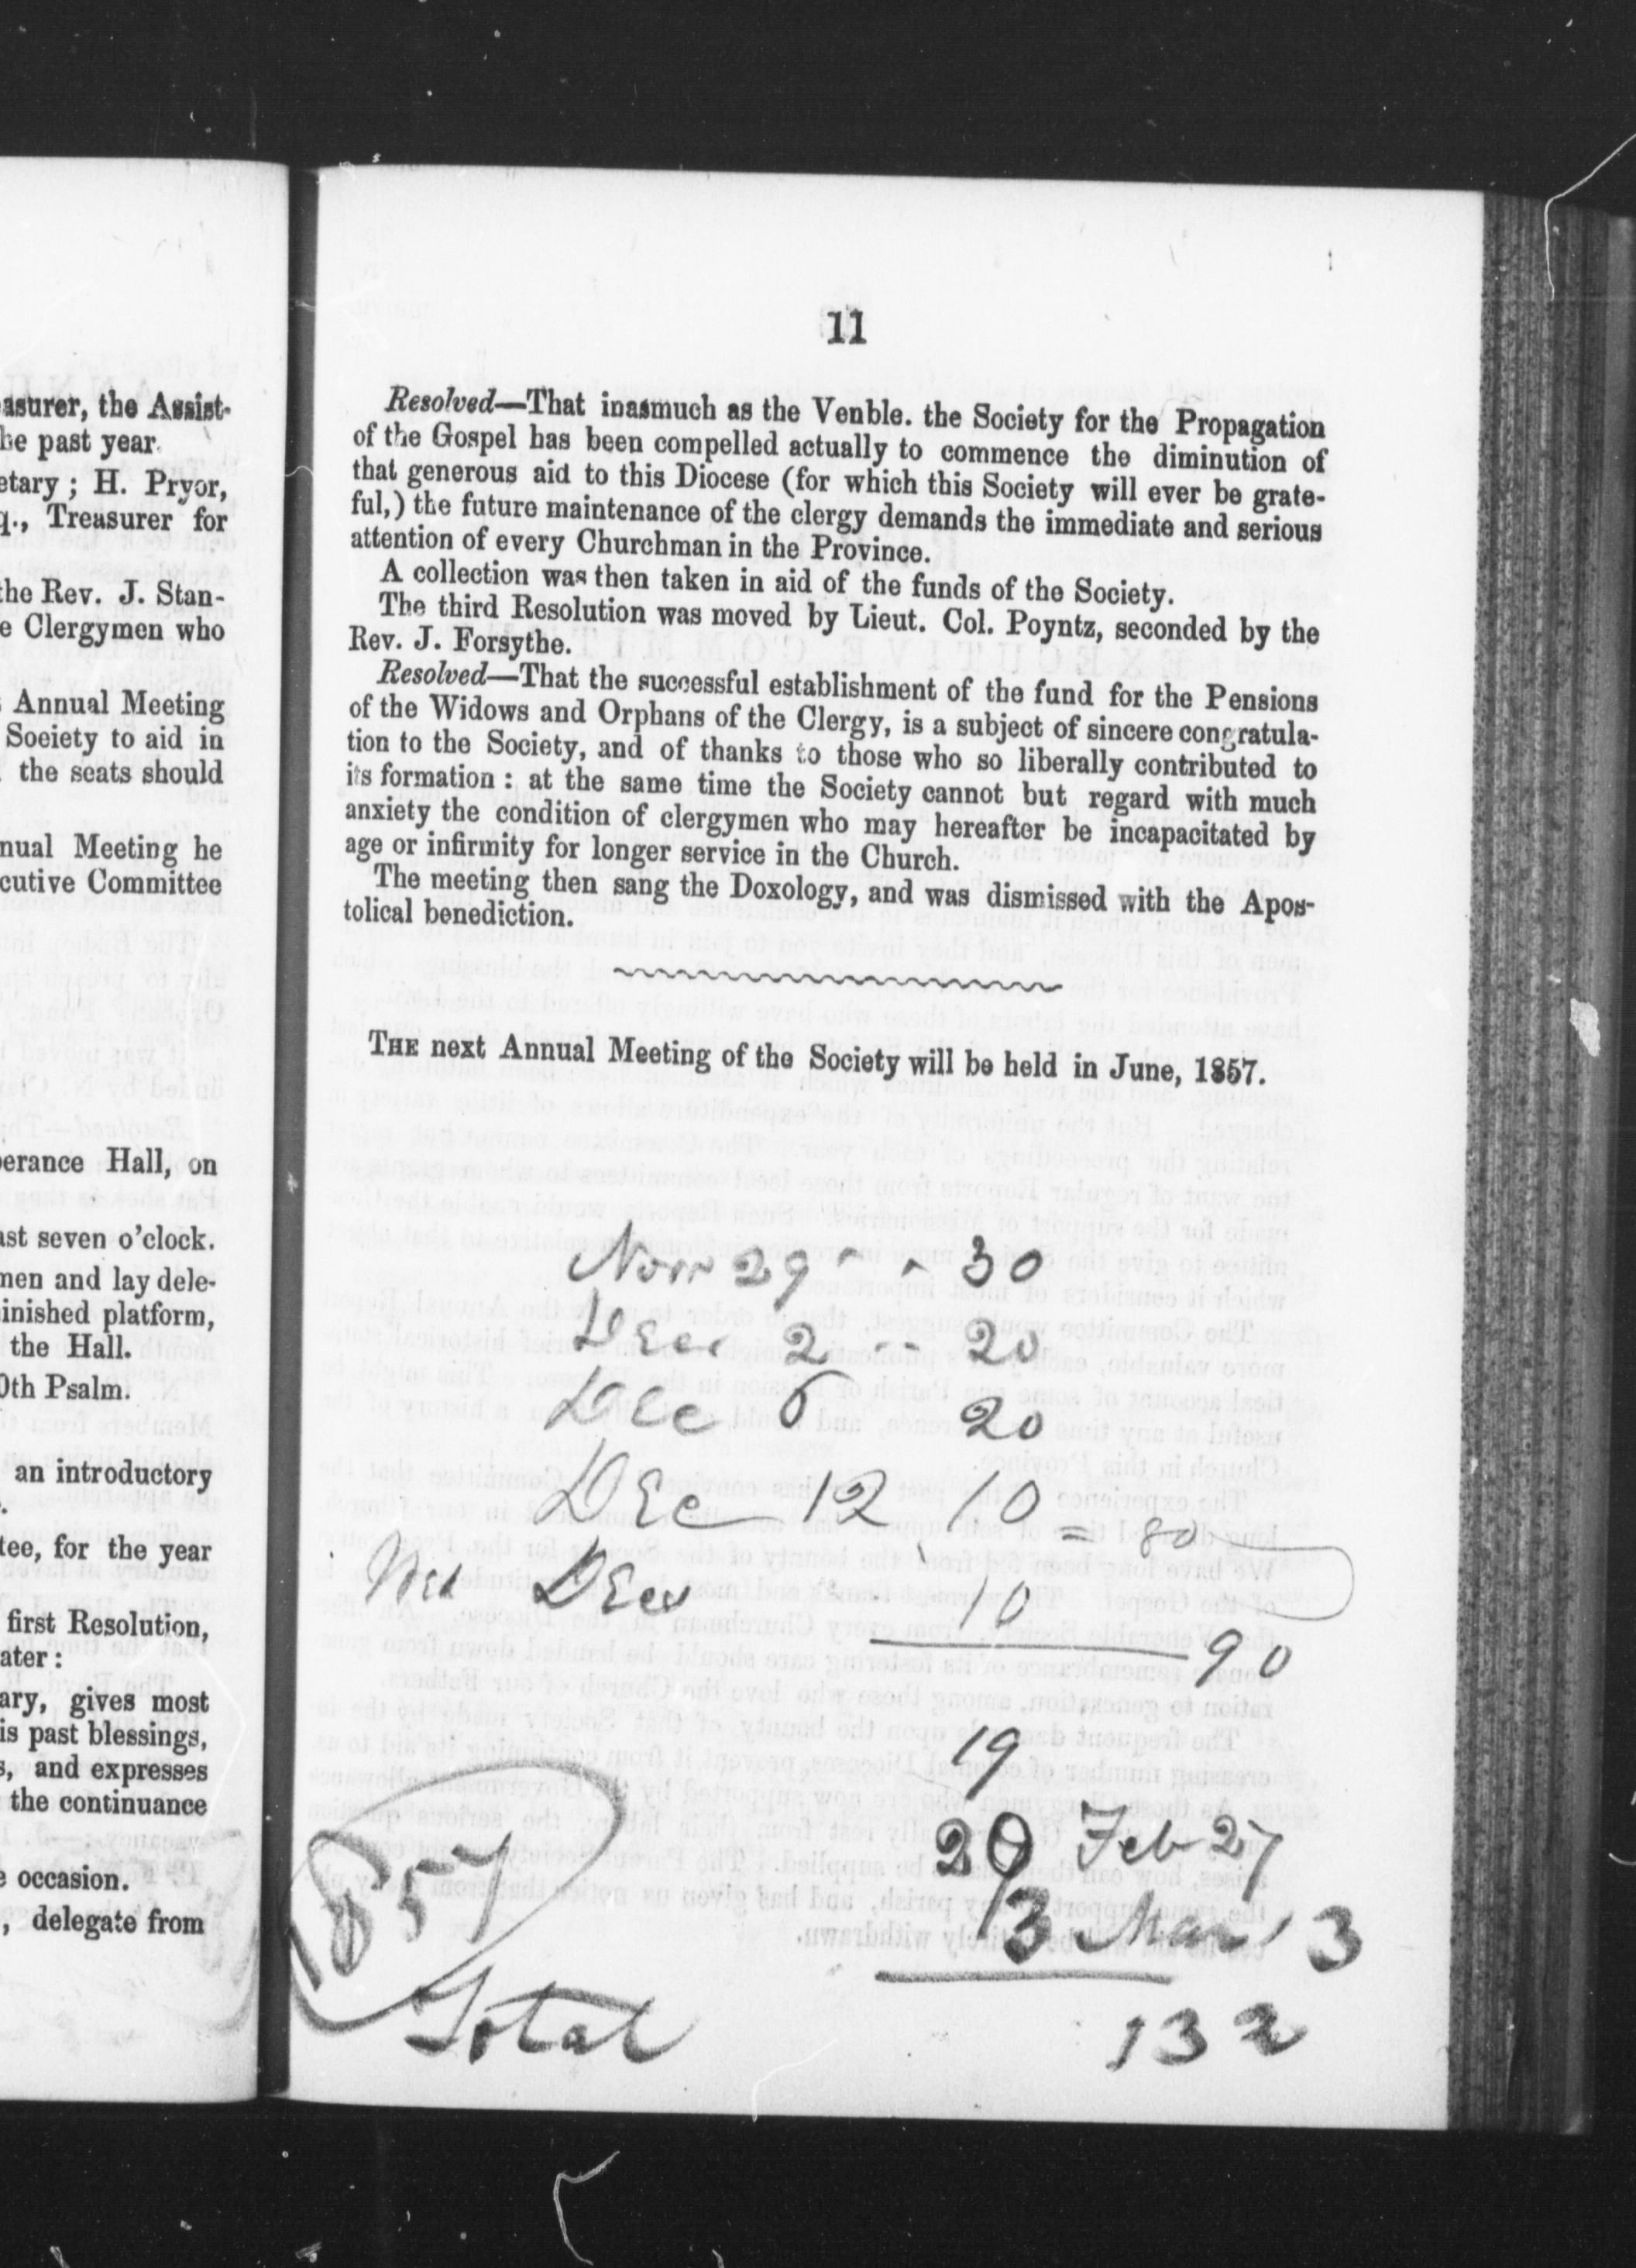 asurer, the Assist-
he past year.
etary ; H. Pryor,
q., Treasurer for
the Rev. J. Stan-
e Clergymen who
Annual Meeting
Soeiety to aid in
the seats should
nual Meeting he
cutive Committee
perance Hall, on
ast seven o'clock.
men and lay dele-
inished platform,
the Hall.
0th Psalm.
an introductory
tee, for the year
first Resolution,
ater :
ary, gives most
is past blessings,
s, and expresses
the continuance
e occasion.
, delegate from
11
Resolved—That inasmuch as the Venble. the Society for the Propagation
of the Gospel has been compelled actually to commence the diminution of
that generous aid to this Diocese (for which this Society will ever be grate-
ful,) the future maintenance of the clergy demands the immediate and serious
attention of every Churchman in the Province.
A collection was then taken in aid of the funds of the Society.
The third Resolution was moved by Lieut. Col. Poyntz, seconded by the
Rev. J. Forsythe.
Resolved—That the successful establishment of the fund for the Pensions
of the Widows and Orphans of the Clergy, is a subject of sincere congratula-
tion to the Society, and of thanks to those who so liberally contributed to
its formation : at the same time the Society cannot but regard with much
anxiety the condition of clergymen who may hereafter be incapacitated by
age or infirmity for longer service in the Church.
The meeting then sang the Doxology, and was dismissed with the Apos-
tolical benediction.
THE next Annual Meeting of the Society will be held in June, 1857.
29 - - 30
Dec 2 - - 20
Dec 6 20
Dec 12 10 = 80
Dec 10
90
19
20 Feb 27
13 Mar 3
1857
Total 132